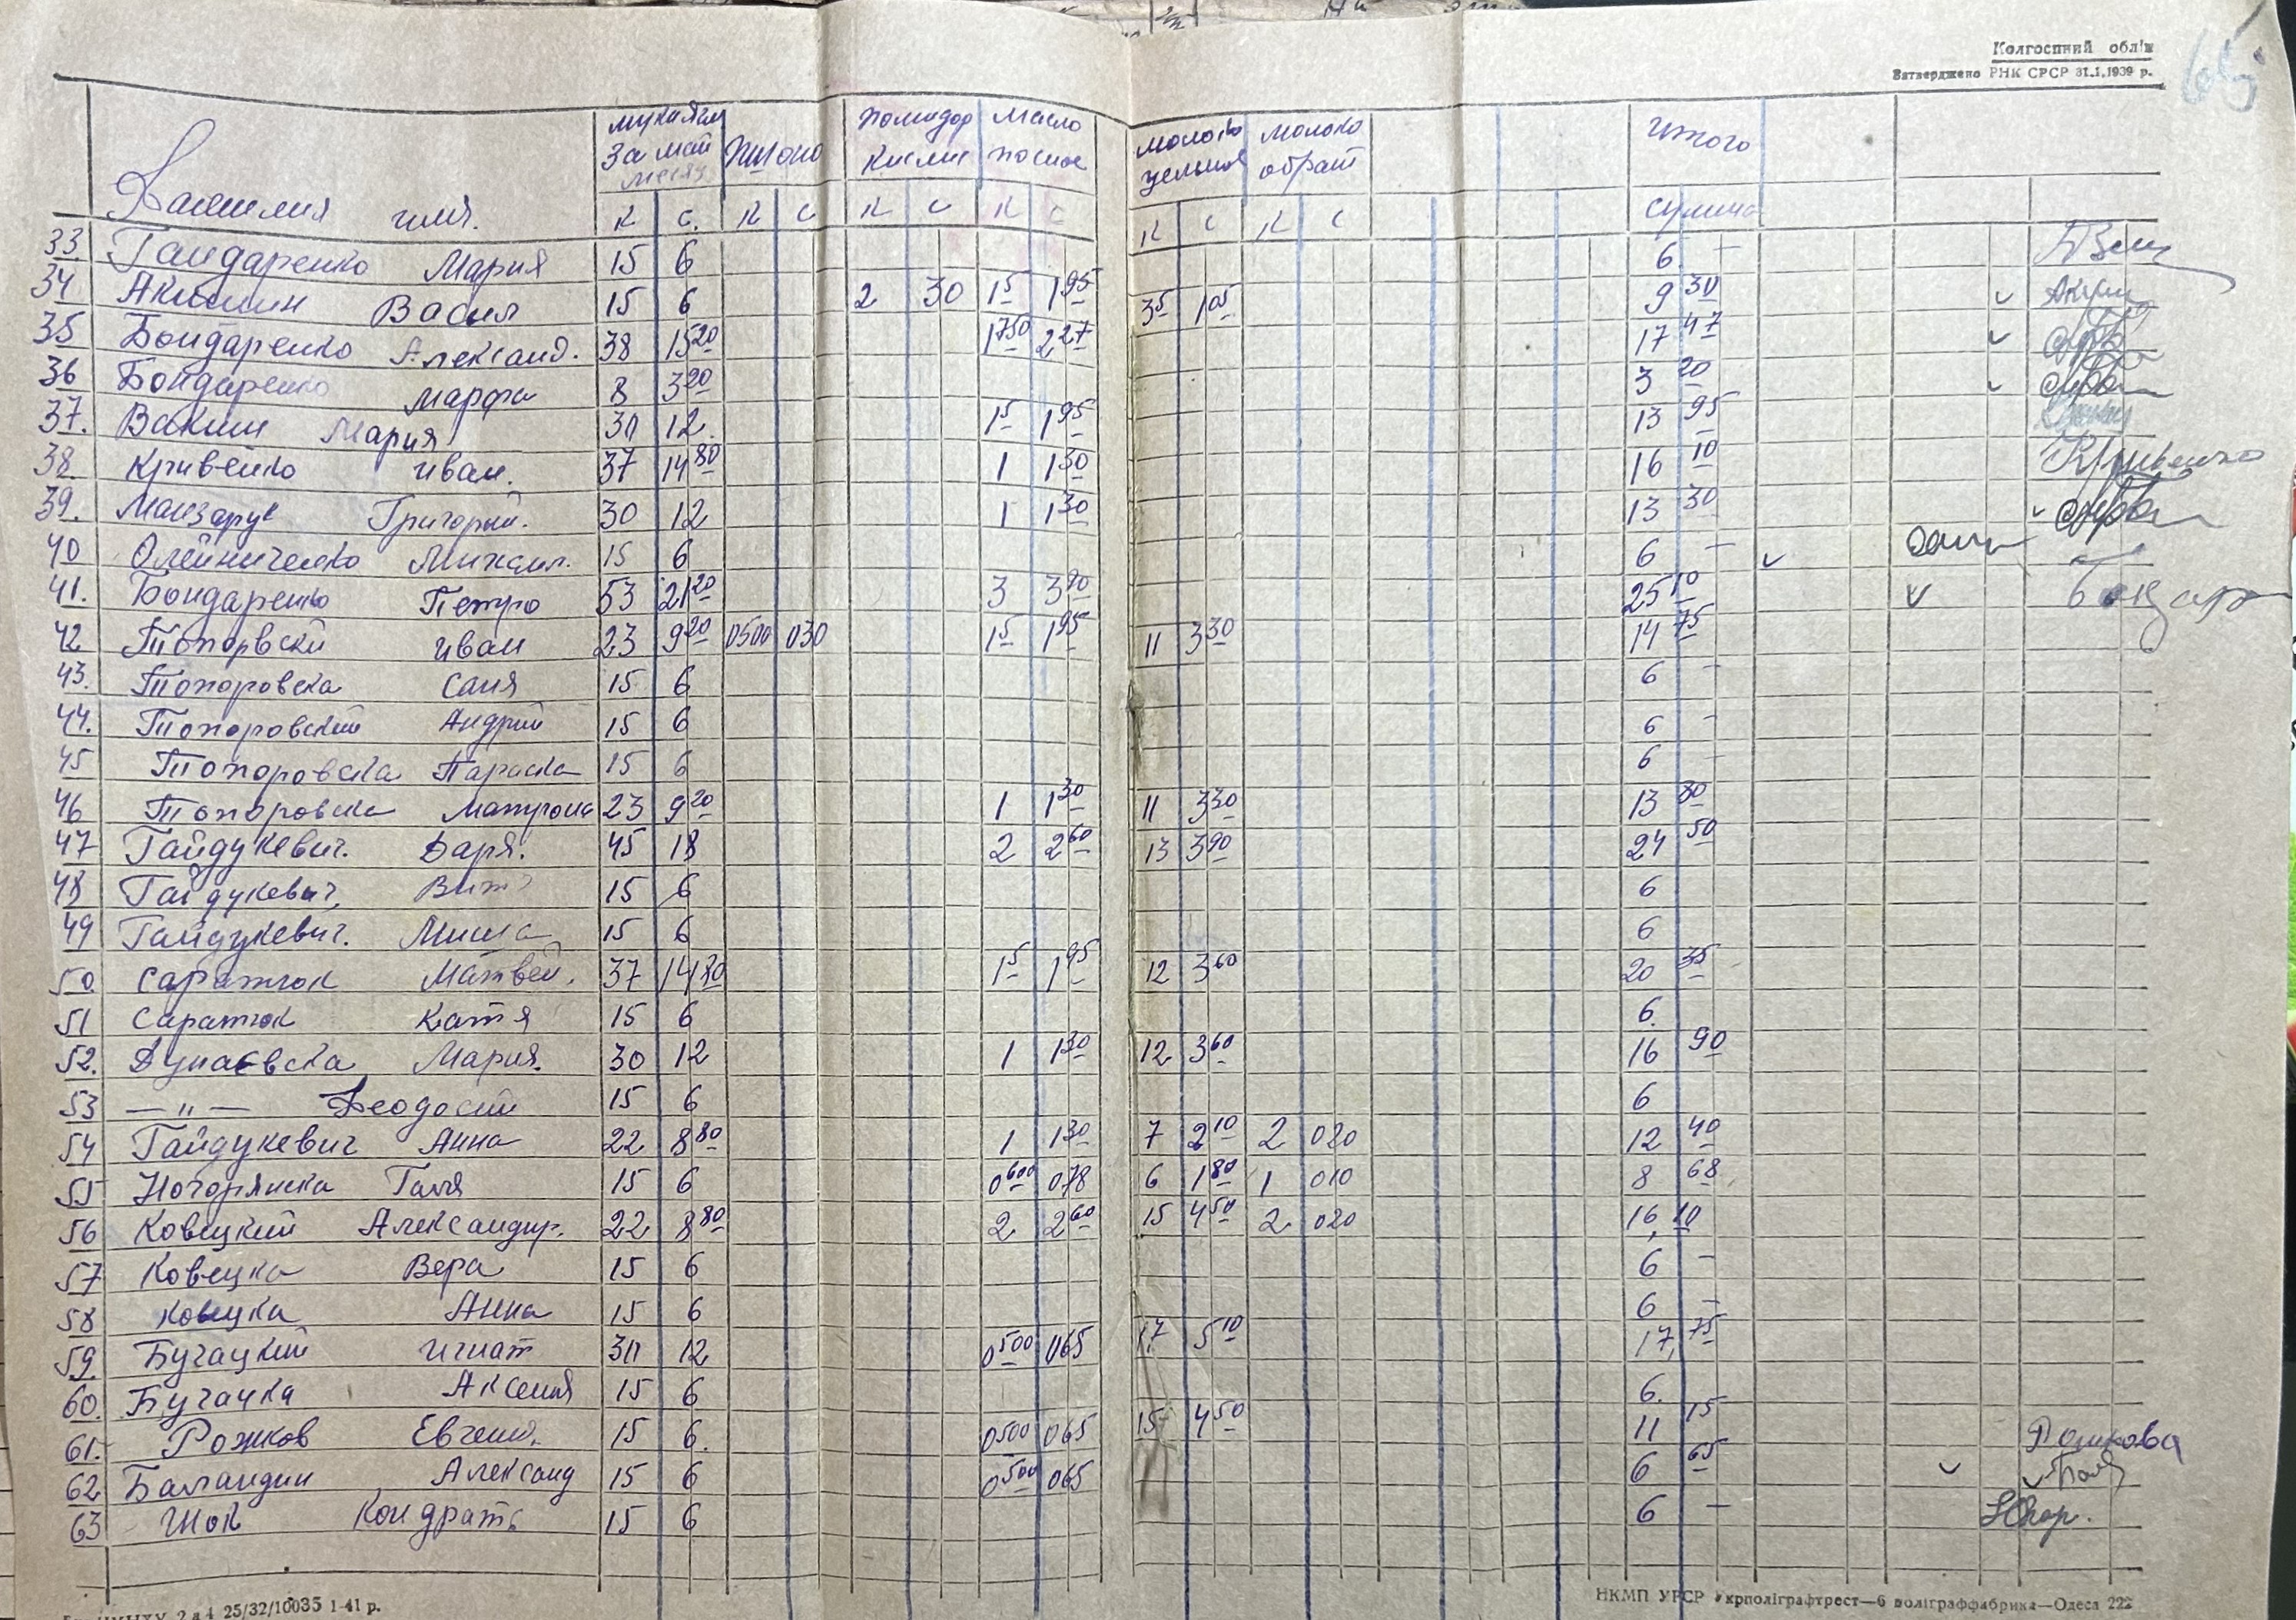 Колгоспний облік
Затверджено РНК СРСР 31.I.1939 р.
Фамилия имя. мукиям за май месяц Пшоно помидор кислие Масло посное молоко цельное молоко обрат Итого
к с. к с к с к с к с к с сумма
33. Гандаренко Мария 15 6 6. –
34 Акимин Васил 15 6 2 30 1 5 1 95 35 1 05 9 30
35 Бондаренко Александ. 38 15 20 1 750 2 27 17 47
36 Бондаренко Марфа 8 3 20 3 20
37. Ваким Мария 30 12. 1 5 1 95 13 95
38. Кривенко Иван. 37 14 80 1 1 30 16 10 Кривенко
39. Манзарук Григорий. 30 12 1 1 30 13 30
40 Олейниченко Михаил. 15 6 6 –
41. Бондаренко Петро 53 21 20 3 3 90 25 10 Бондар
42 Топорвски Иван 23 9 20 0500 030 1 5 1 95 11 3 30 14 75
43. Топоровска Саня 15 6 6 –
44. Топоровский Андрий 15 6 6 –
45 Топоровска Параска 15 6 6 –
46 Топоровска Матрона 23 9 20 1 1 30 11 3 30 13 80
47 Гайдукевич. Даря. 45 18 2 2 60 13 3 90 24 50
48 Гайдукевич, Витя 15 6 6
49 Гайдукевич. Миша 15 6 6
50. Саратюк Матвей. 37 14 80 1 5 1 95 12 3 60 20 35
51 Саратюк Катя 15 6 6.
52. Дунаевска Мария. 30 12 1 1 30 12 3 60 16 90
53 — " — Феодосий 15 6 6
54 Гайдукевич Анна 22 8 80 1 1 30 7 2 10 2 020 12 40
55 Ногорянска Галя 15 6 0 600 078 6 1 80 1 010 8 68
56 Ковецкий Александр. 22 8 80 2 2 60 15 4 50 2 020 16, 10
57 Ковецка Вера 15 6 6 –
58 Ковецка Анна 15 6 6 –
59. Бучацкий Игнат 30 12 0 500 065 17 5 10 17, 75
60. Бучачка Аксения 15 6 6.
61. Рожков Евгени. 15 6. 0500 065 15 4 50 11 15 Рошкова
62 Баландин Александ 15 6 0 500 065 6 65
63 Шок Кондрать 15 6 6 –
25/32/10035 1-41 р.
НКМП УРСР Укрполіграфтрест—6 поліграффабрика—Одеса 222